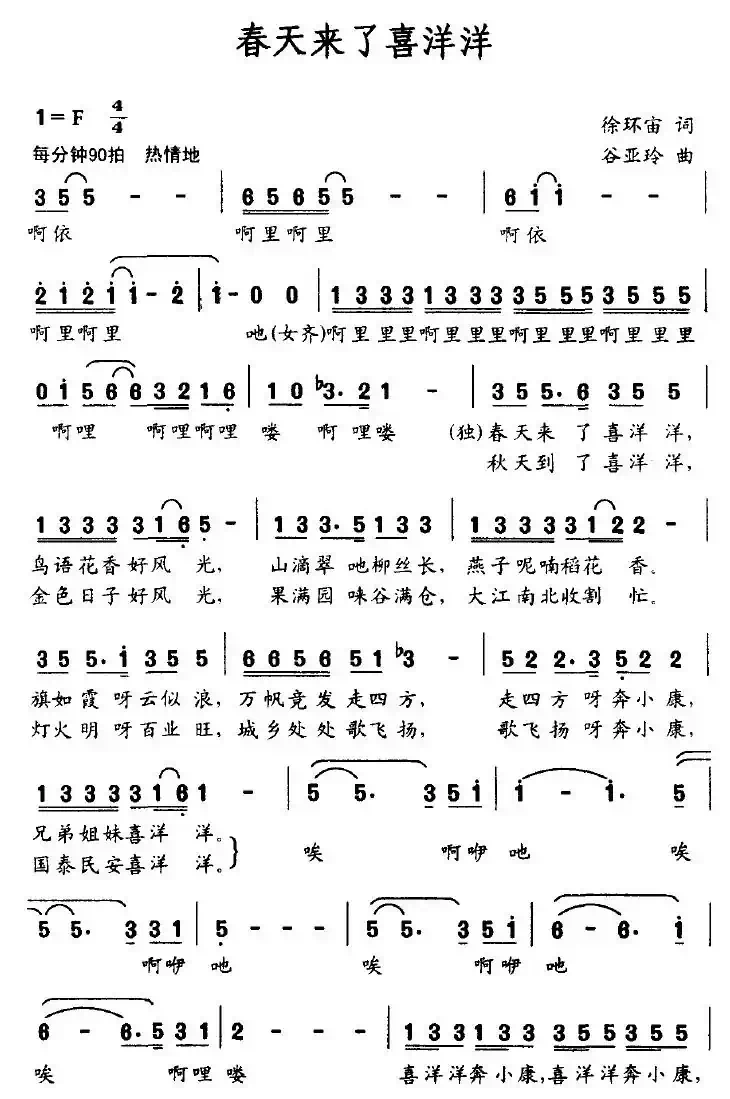 春天来了喜洋洋
1=F 4/4
徐环宙 词
每分钟90拍 热情地
谷亚玲 曲
3 5 5 - - | 6 5 6 5 5 - - | 6 i i - - |
啊依 啊里啊里 啊依
2 i 2 i i - 2 | i - 0 0 | 1 3 3 3 1 3 3 3 3 5 5 5 3 5 5 5 |
啊里啊里 吔(女齐)啊里里里啊里里里啊里里里啊里里里
0 i 5 6 6 3 2 1 6 | 1 0 b3. 2 1 - | 3 5 5. 6 3 5 5 |
啊哩 啊哩啊哩 喽 啊哩喽 (独)春天来 了喜洋洋,
秋天到 了喜洋洋,
1 3 3 3 3 1 6 5 - | 1 3 3. 5 1 3 3 | 1 3 3 3 3 1 2 2 - |
鸟语花香好风 光, 山滴翠 吔柳丝长, 燕子呢喃稻花 香。
金色日子好风 光, 果满园 唻谷满仓, 大江南北收割 忙。
3 5 5. i 3 5 5 | 6 6 5 6 5 1 b3 - | 5 2 2. 3 5 2 2 |
旗如霞 呀云似浪, 万帆竞发走四方, 走四方 呀奔小康,
灯火明 呀百业旺, 城乡处处歌飞扬, 歌飞扬 呀奔小康,
1 3 3 3 3 1 6 1 - | 5 5. 3 5 i | i - i. 5 |
兄弟姐妹喜洋 洋。
国泰民安喜洋 洋。} 唉 啊咿吔 唉
5 5. 3 3 1 | 5 - - - | 5 5. 3 5 i | 6 - 6. i |
啊咿 吔 唉 啊咿吔
6 - 6. 5 3 1 | 2 - - - | 1 3 3 1 3 3 3 5 5 3 5 5 |
唉 啊哩喽 喜洋洋奔小康,喜洋洋奔小康,